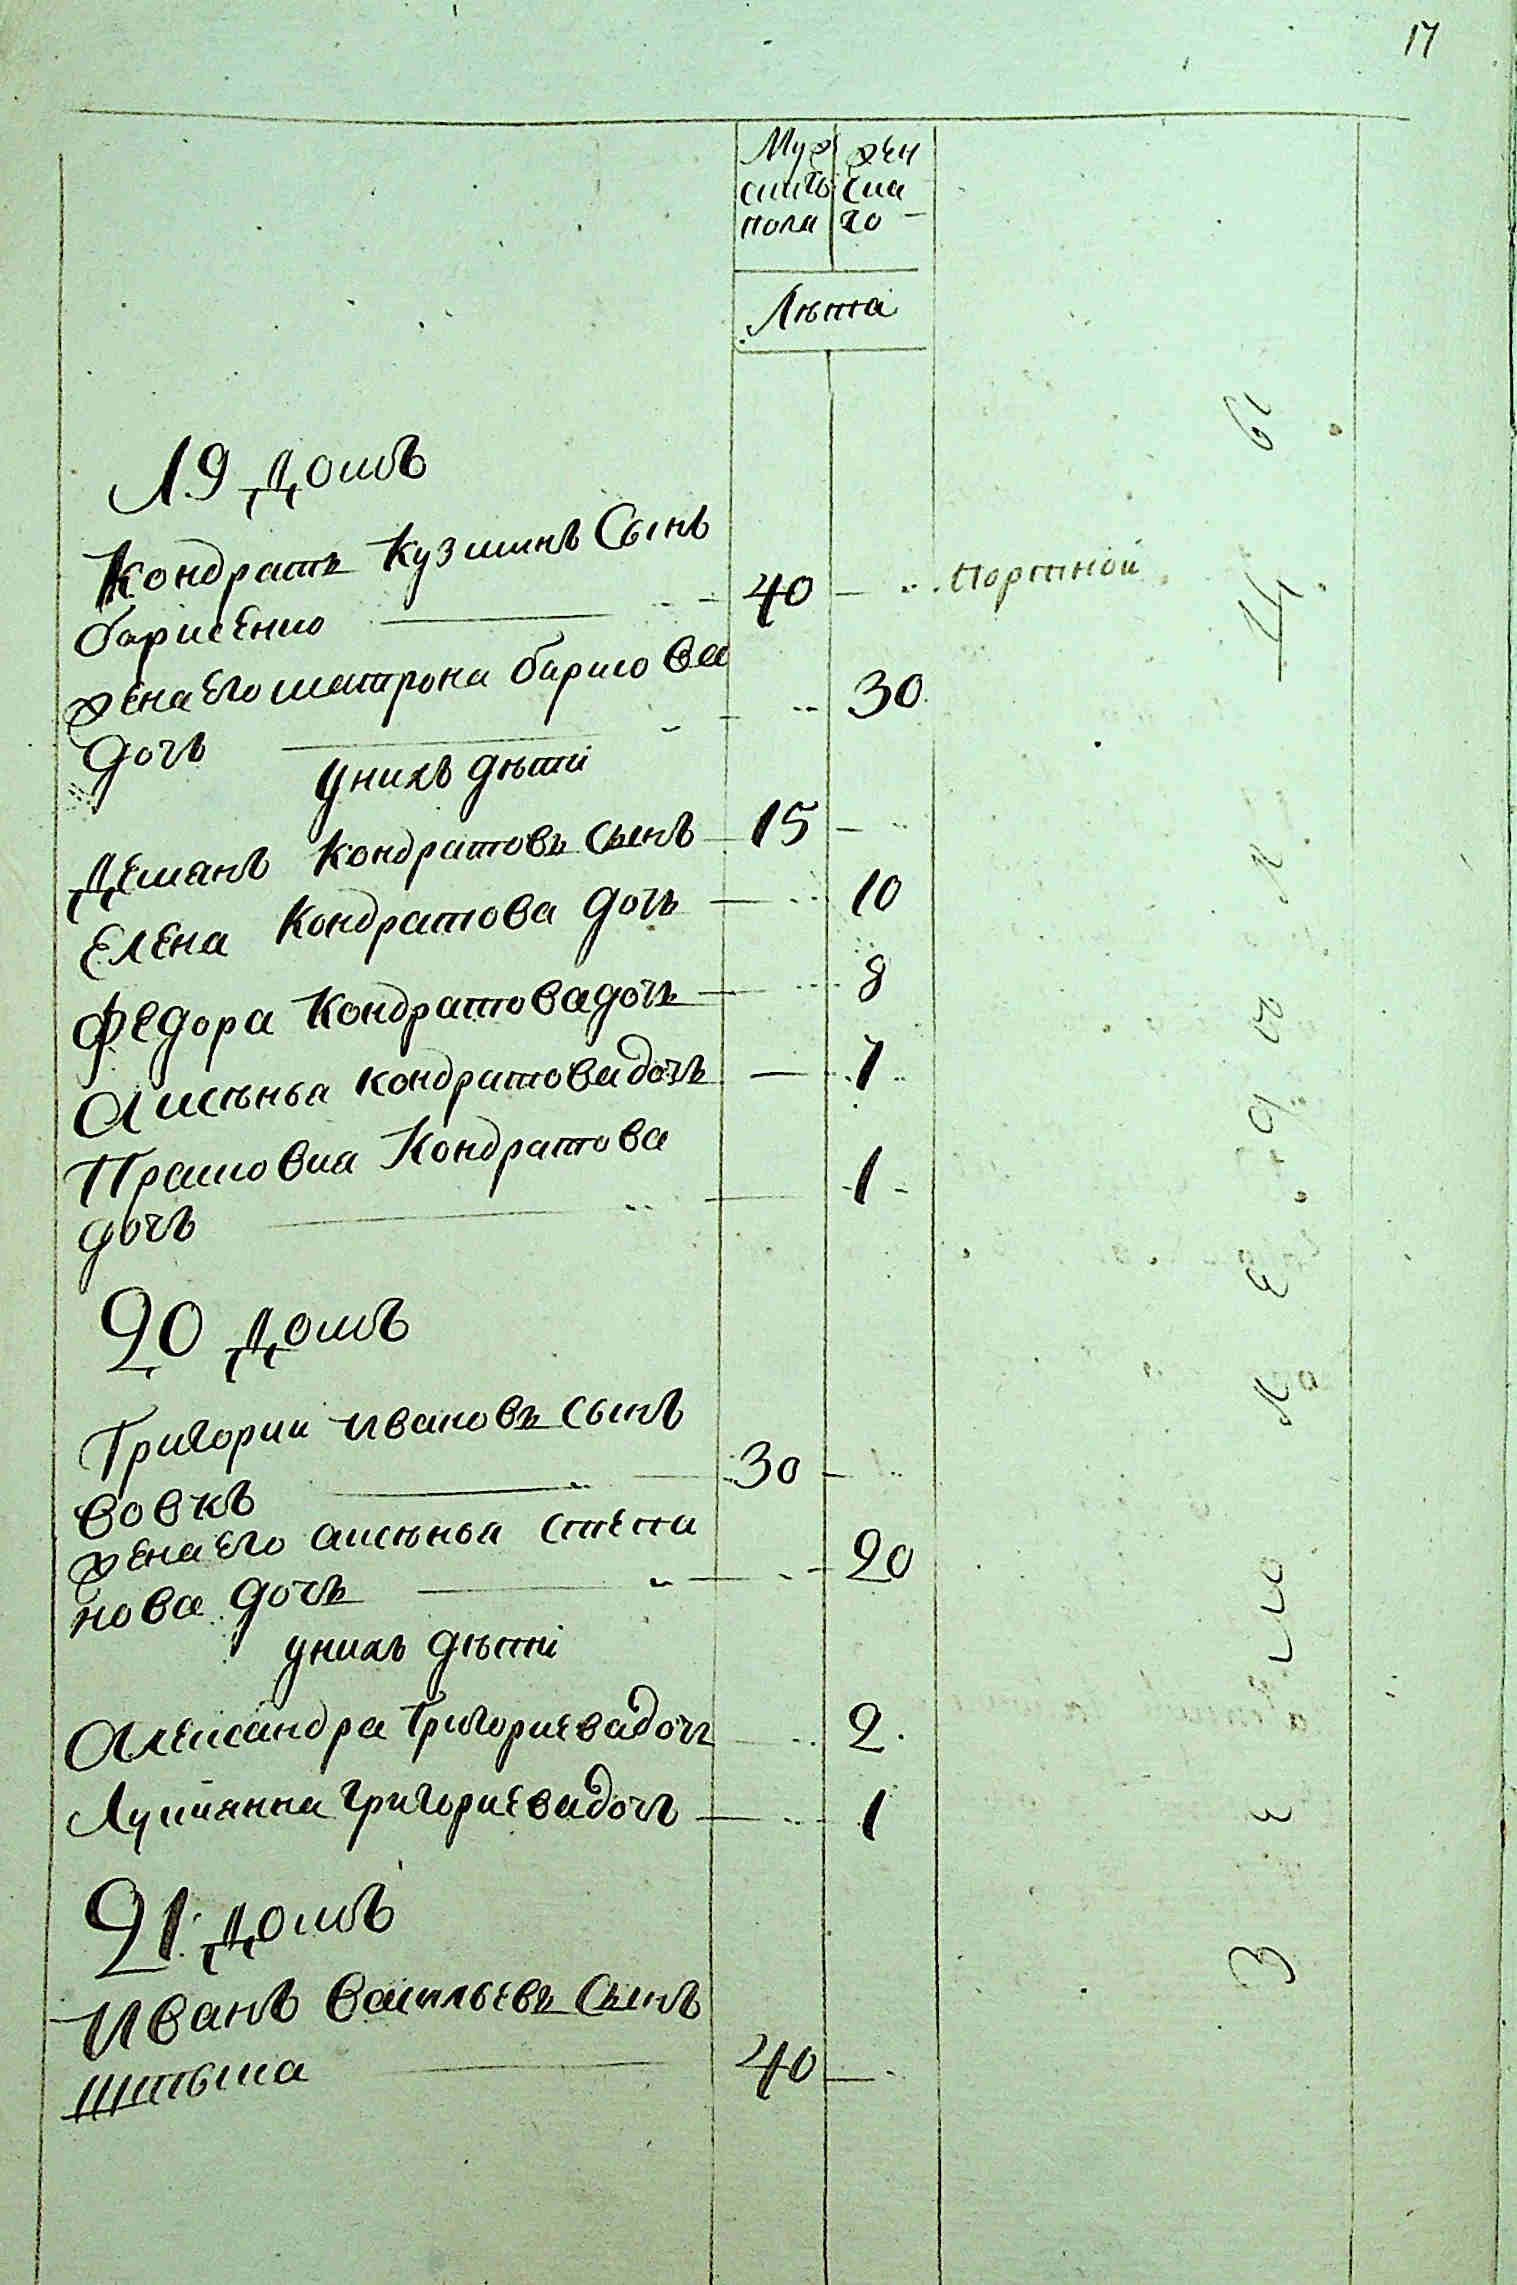 17
Муж жен
скагѡ ска
пола го
Лѣта
19 домъ
Кондратъ Кузминъ Сынъ
барисенко 40 портной
жена Его матрона барисова
дочь 30
унихъ дѣти
Демянъ Кондратовъ сынъ 15
Елена Кондратова дочь 10
Федора Кондратова дочь 8
Аксѣнья кондратова дочь 7
Прасковия Кондратова
дочь 1
20 домъ
Григории ивановъ сынъ
вовкъ 30
жена Его аксѣнья степа
нова дочь 20
унихъ дѣти
Александра Григориева дочь 2
Лукиянна григориева дочь 1
21 домъ
Иванъ васильевъ Сынъ
40